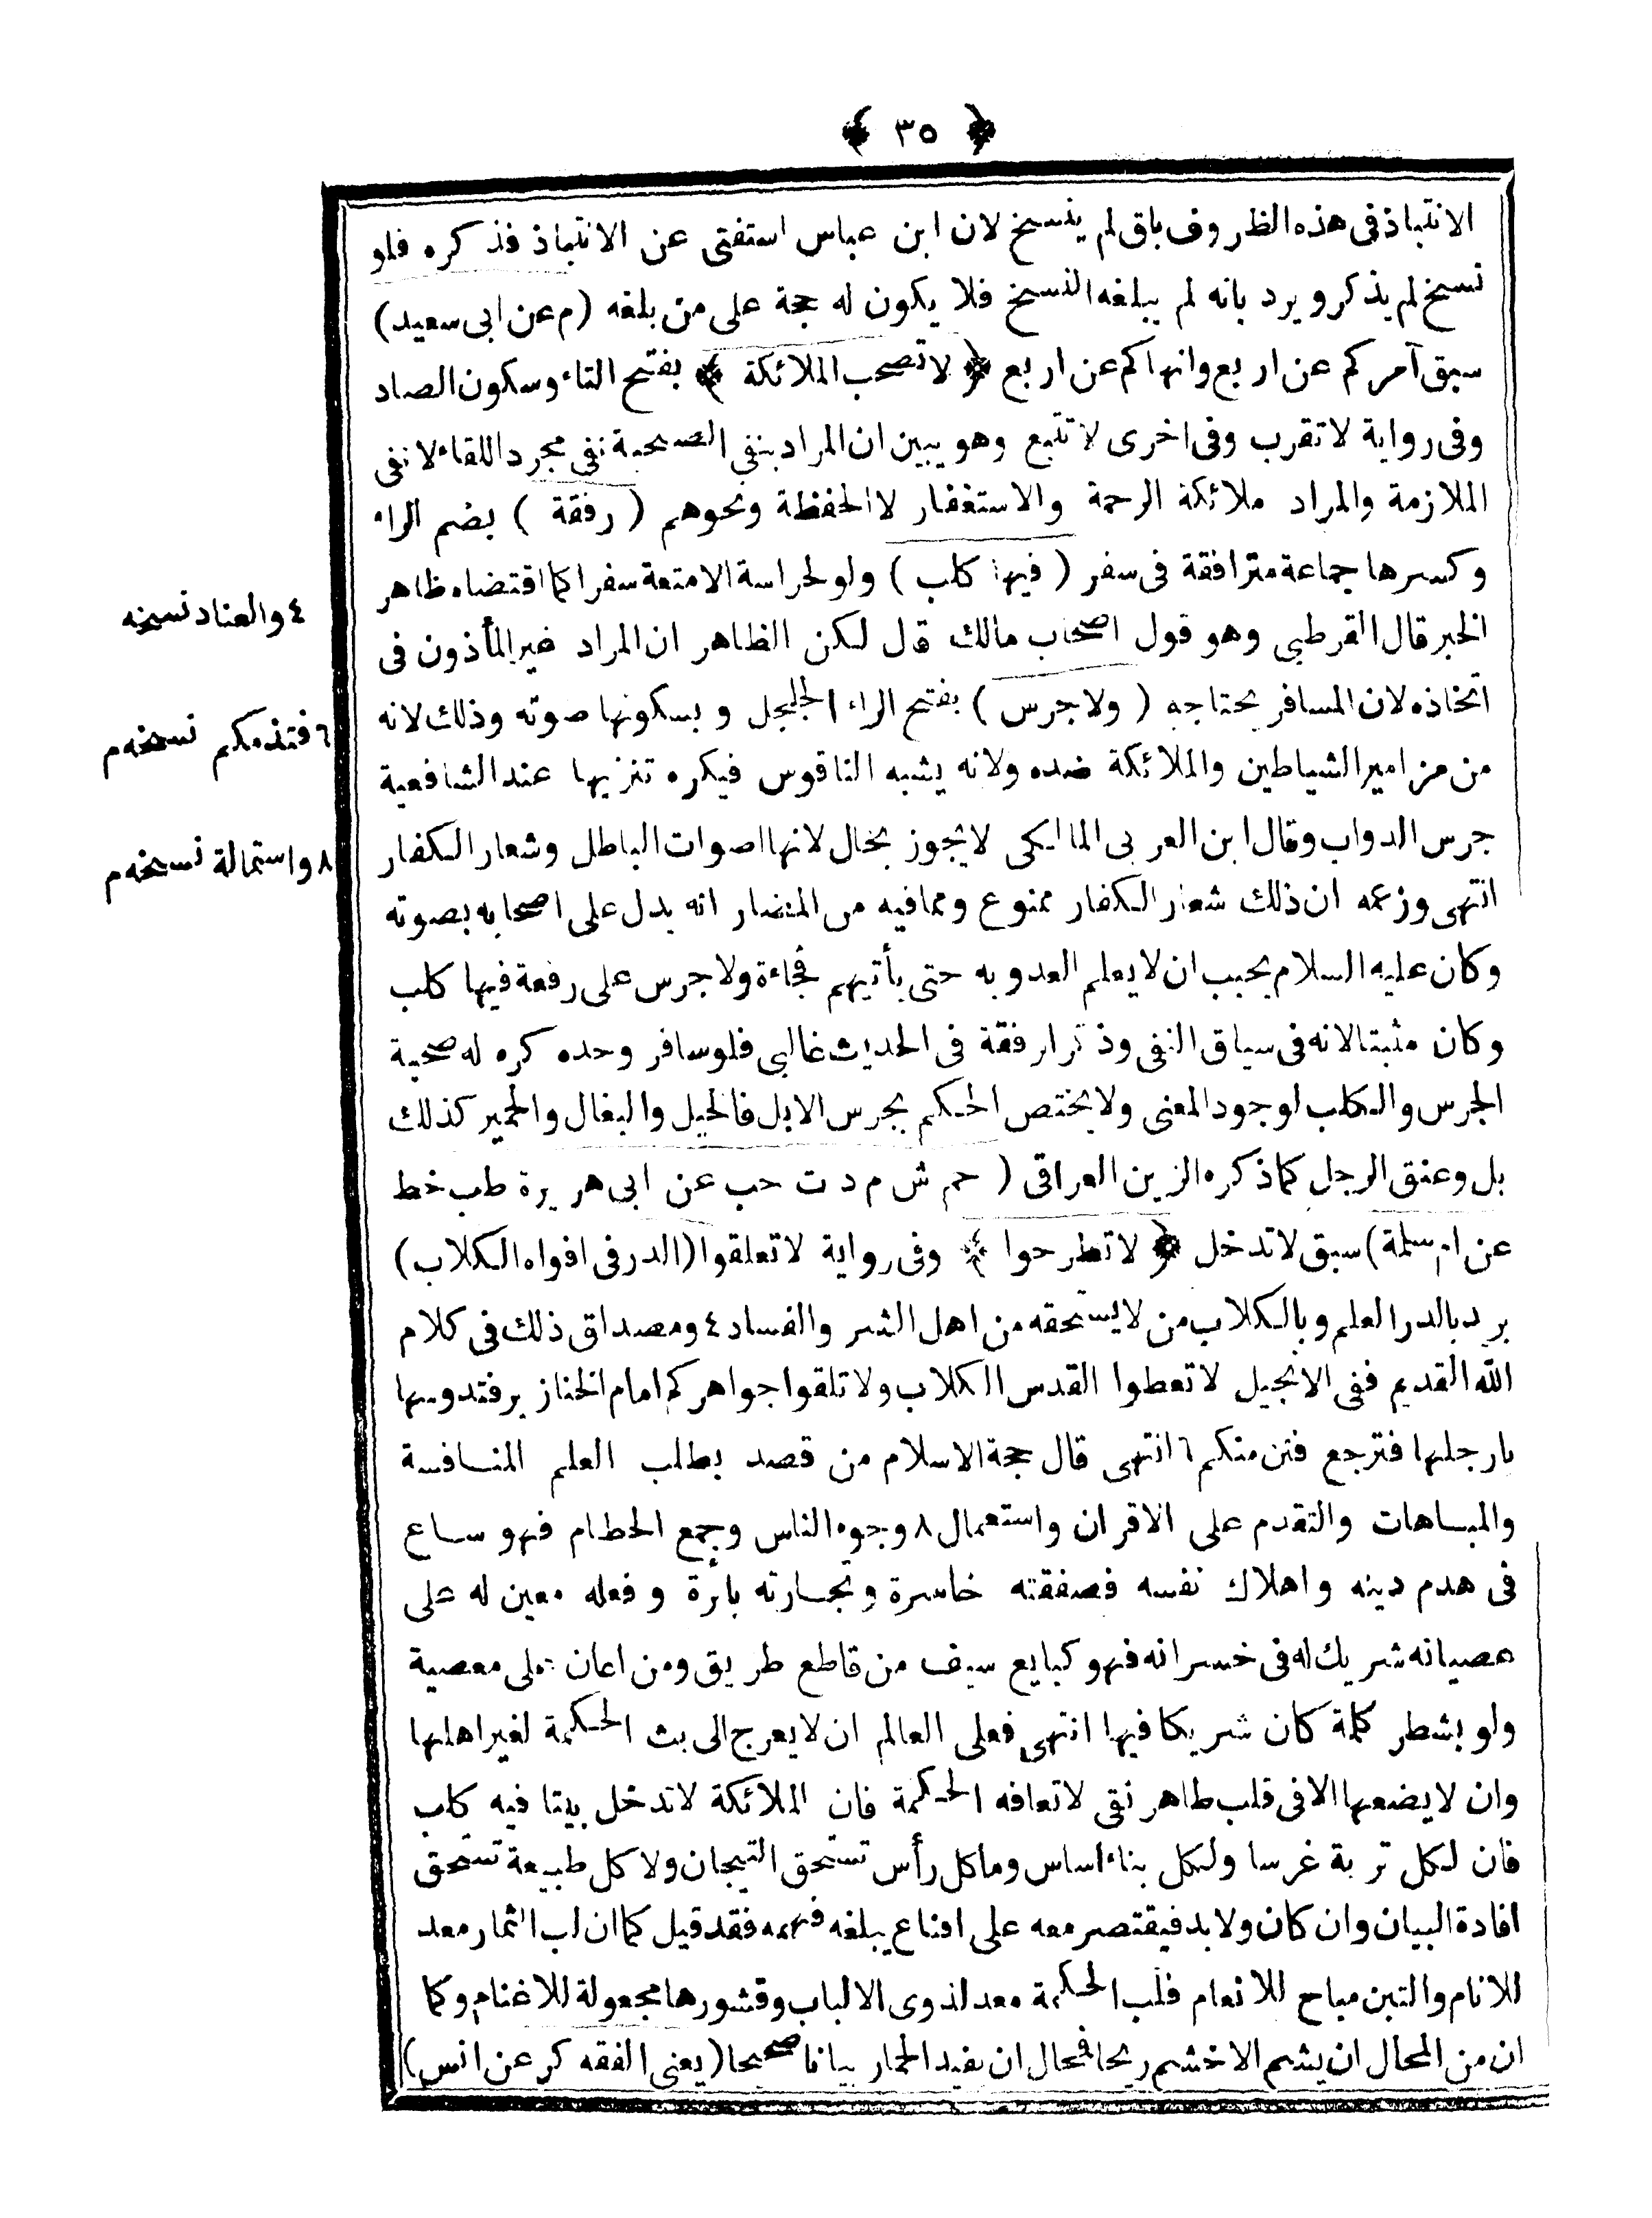 ﴿ ٣٥ ﴾
الانتباذ فى هذه الظروف باق لم ينسخ لان ابن عباس استفتى عن الانتباذ فذكره فلو
نسخ لم يذكر ويرد بانه لم يبلغه النسخ فلا يكون له حجة على من بلغه (م عن ابى سعيد)
سبق آمركم عن اربع وانهاكم عن اربع ﴿ لا تصحب الملائكة ﴾ بفتح التاء وسكون الصاد
وفى رواية لا تقرب وفى اخرى لا تتبع وهو يبين ان المراد بنفى الصحبة نفى مجرد اللقاء لا نفى
الملازمة والمراد ملائكة الرحمة والاستغفار لا الحفظة ونحوهم (رفقة) بضم الراء
وكسرها جماعة مترافقة فى سفر (فيها كلب) ولو لحراسة الامتعة سفرا كما اقتضاه ظاهر
الخبر قال القرطبى وهو قول اصحاب مالك قال لكن الظاهر ان المراد غير المأذون فى
اتخاذه لان المسافر يحتاجه (ولا جرس) بفتح الراء الجلجل وبسكونها صوته وذلك لانه
من مزامير الشياطين والملائكة ضده ولانه يشبه الناقوس فيكره تنزيها عند الشافعية
جرس الدواب وقال ابن العربى المالكى لا يجوز بحال لانها اصوات الباطل وشعار الكفار
انتهى وزعمه ان ذلك شعار الكفار ممنوع ومما فيه من المضار انه يدل على اصحابه بصوته
وكان عليه السلام يحبب ان لا يعلم العدو به حتى يأتيهم فجاءة ولا جرس على رفقة فيها كلب
وكان مثبتا لانه فى سياق النفى وذكر الرفقة فى الحديث غالبى فلو سافر وحده كره له صحبة
الجرس والكلب لوجود المعنى ولا يختص الحكم بجرس الابل فالخيل والبغال والحمير كذلك
بل وعنق الرجل كما ذكره الزين العراقى (حم ش م د ت حب عن ابى هريرة طب خط
عن ام سلمة) سبق لا تدخل ﴿ لا تطرحوا ﴾ وفى رواية لا تعلقوا (الدر فى افواه الكلاب)
يريد بالدر العلم وبالكلاب من لا يستحقه من اهل الشر والفساد ٤ ومصداق ذلك فى كلام
الله القديم ففى الانجيل لا تعطوا القدس الكلاب ولا تلقوا جواهركم امام الخنازير فتدوسها
بارجلها فترجع فتن منكم ٦ انتهى قال حجة الاسلام من قصد بطلب العلم المنافسة
والمباهات والتقدم على الاقران واستعمال ٨ وجوه الناس وجمع الحطام فهو ساع
فى هدم دينه واهلاك نفسه فصفقته خاسرة وتجارته بائرة وفعله معين له على
عصيانه شريك له فى خسرانه فهو كبايع سيف من قاطع طريق ومن اعان على معصية
ولو بشطر كلمة كان شريكا فيها انتهى فعلى العالم ان لا يعرج الى بث الحكمة لغير اهلها
وان لا يضعها الا فى قلب طاهر نقى لا تعافه الحكمة فان الملائكة لا تدخل بيتا فيه كلب
فان لكل تربة غرسا ولكل بناء اساس وما كل رأس تستحق التيجان ولا كل طبيعة تستحق
افادة البيان وان كان ولا بد فيقتصر معه على اقناع يبلغه فهمه فقد قيل كما ان لب الثمار معد
للانام والتبن مباح للانعام فلب الحكمة معد لذوى الالباب وقشورها مجعولة للاغنام وكما
ان من المحال ان يشم الاخشم ريحا فمحال ان يفيد الحمار بيانا صحيحا (يعنى الفقه كر عن انس)
٤ والعناد نسخه
٦ فتذمكم نسخه م
٨ واستمالة نسخه م